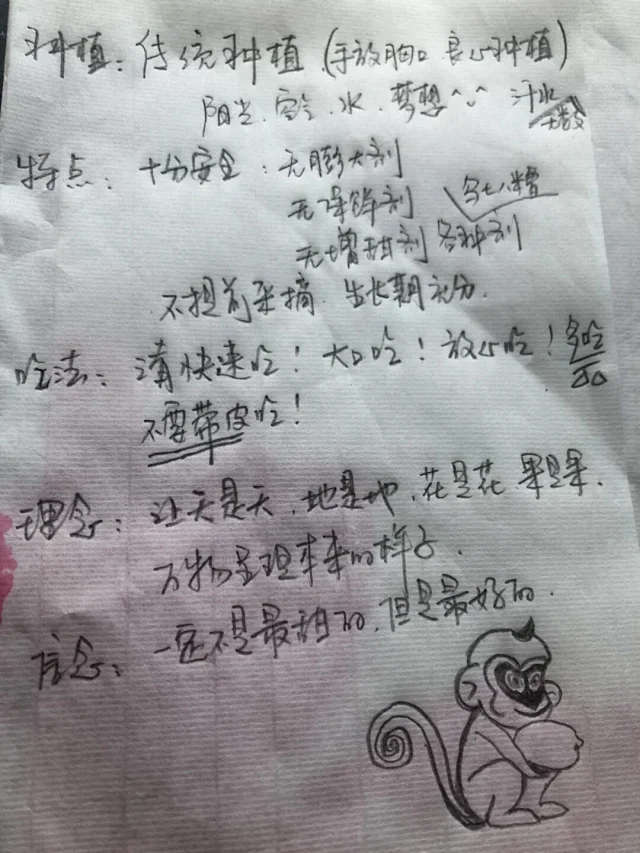 种植：传统种植（手放胸口 良心种植）
阳光、空气、水、梦想 汗水
无数
特点：十分安全：无膨大剂
无催熟剂 乌七八糟
无增甜剂 各种剂
不提前采摘 生长期充分.
吃法：请快速吃！大口吃！放心吃！多吃
不要带皮吃！
理念：让天是天、地是地、花是花 果是果.
万物呈现本来的样子.
信念：一定不是最甜的，但是最好的.